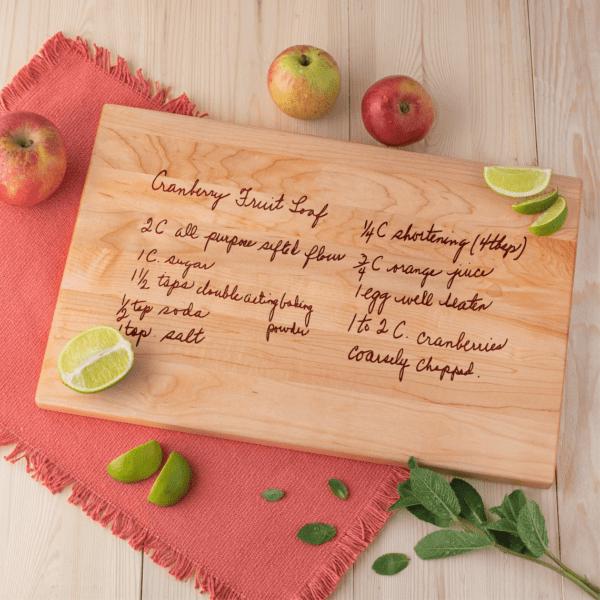 Cranberry Fruit Loaf
2 C all purpose sifted flour
1 C. sugar
1½ tsps double acting baking
powder
½ tsp soda
1 tsp salt
¼ C shortening (4 tbsp)
¾ C orange juice
1 egg well beaten
1 to 2 C. cranberries
coarsely chopped.